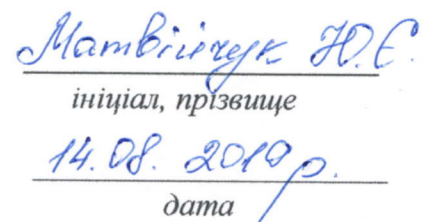 Матвійчук Ю.Є.
ініціал, прізвище
14.08. 2019 р.
дата